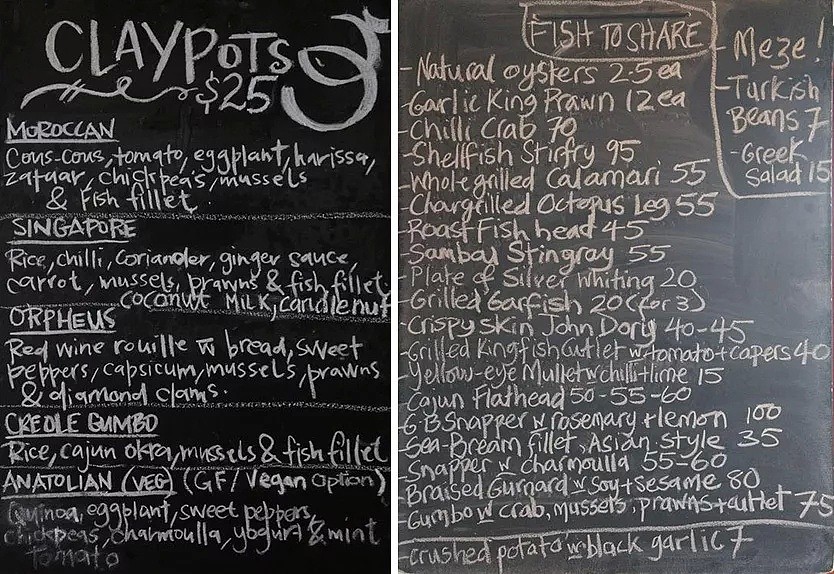 CLAYPOTS
$25
MOROCCAN
Cous-cous, tomato, eggplant, harissa,
zataar, chickpea's, mussels
& fish fillet.
SINGAPORE
Rice, chilli, coriander, ginger sauce,
carrot, mussels, prawns & fish fillet,
coconut milk, candlenut
ORPHEUS
Red wine rouille w bread, sweet
peppers, capsicum, mussels, prawns
& diamond clams.
CREOLE GUMBO
Rice, cajun okra, mussels & fish fillet
ANATOLIAN (VEG) (GF/Vegan option)
Quinoa, eggplant, sweet peppers,
chickpeas, charmoulla, yogurt & mint
Tomato
FISH TO SHARE
-Natural oysters 2.5ea
-Garlic King Prawn 12ea
-Chilli Crab 70
-Shellfish Stirfry 95
-Whole grilled Calamari 55
-Chargrilled Octopus Leg 55
-Roast Fish head 45
-Sambal Stingray 55
-Plate of Silver Whiting 20
-Grilled Garfish 20 (for 3)
-Crispy Skin John Dory 40-45
-Grilled Kingfish Cutlet w tomato+capers 40
-Yellow-eye Mullet w chilli+lime 15
-Cajun Flathead 50-55-60
-G.B Snapper w rosemary + lemon 100
-Sea-Bream fillet, Asian style 35
-Snapper w charmoulla 55-60
-Braised Gurnard w soy+sesame 80
-Gumbo w crab, mussels, prawns+cutlet 75
-crushed potato w black garlic 7
-Meze!
-Turkish
Beans 7
-Greek
Salad 15